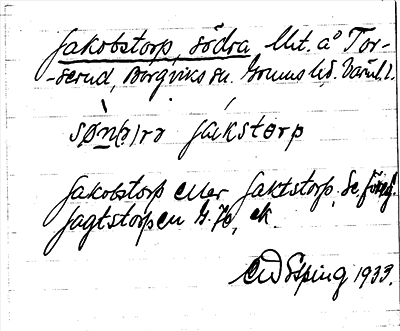 Jakobstorp, södra hlt. å Tor-
-serud, Borgviks sn. Grums hd. Värml. l.
sø̀n(ə)rə jákstɵrp
Jakobstorp eller Jaktstorp. Se föreg.
Jagtstorpen G. Jb, ek.
Esping 1933.